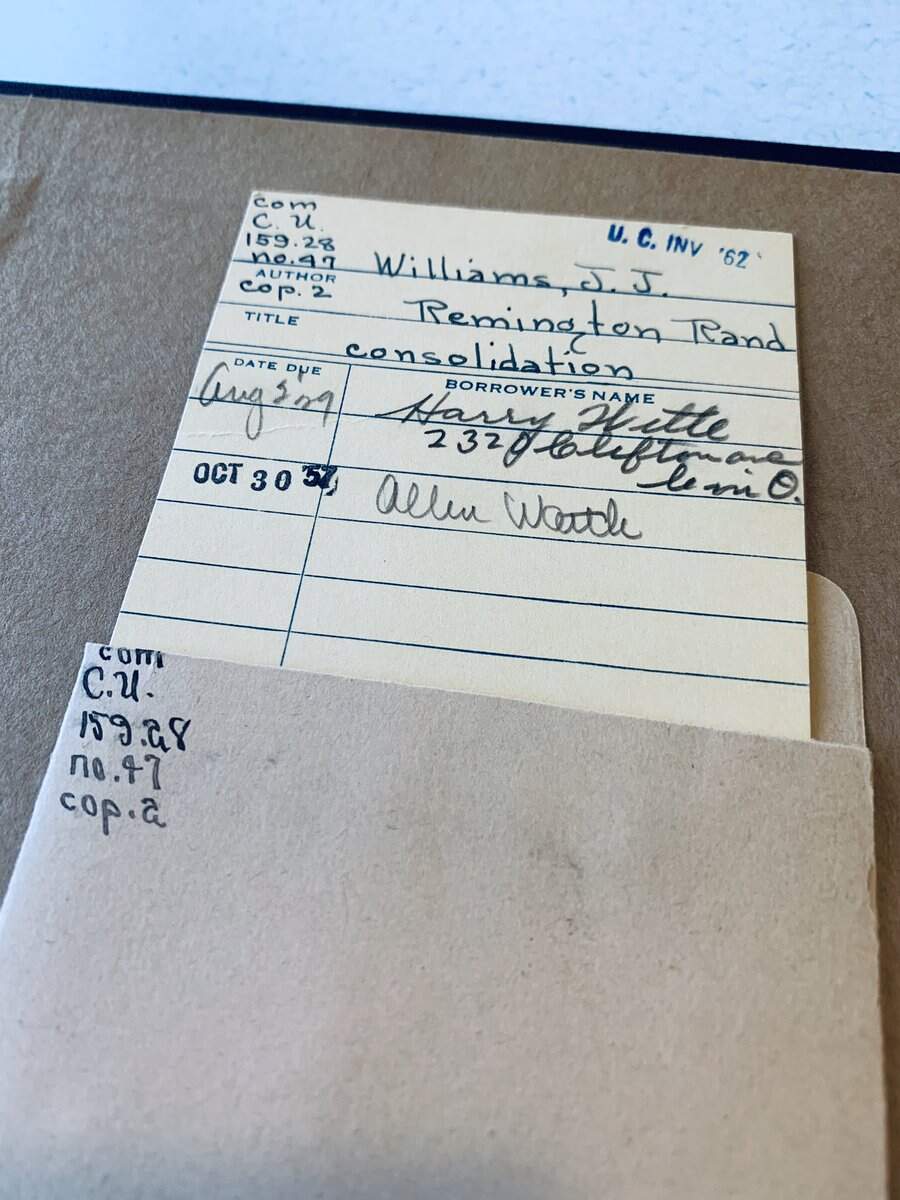 com
C. U.
159.28
no. 47
U. C. INV '62
AUTHOR
Williams, J. J.
cop. 2
TITLE
Remington Rand
consolidation
DATE DUE
BORROWER'S NAME
Aug
Harry Witte
Clifton ave
O.
OCT 30 '57
Allen
com
C.U.
159.28
no. 47
cop. 2